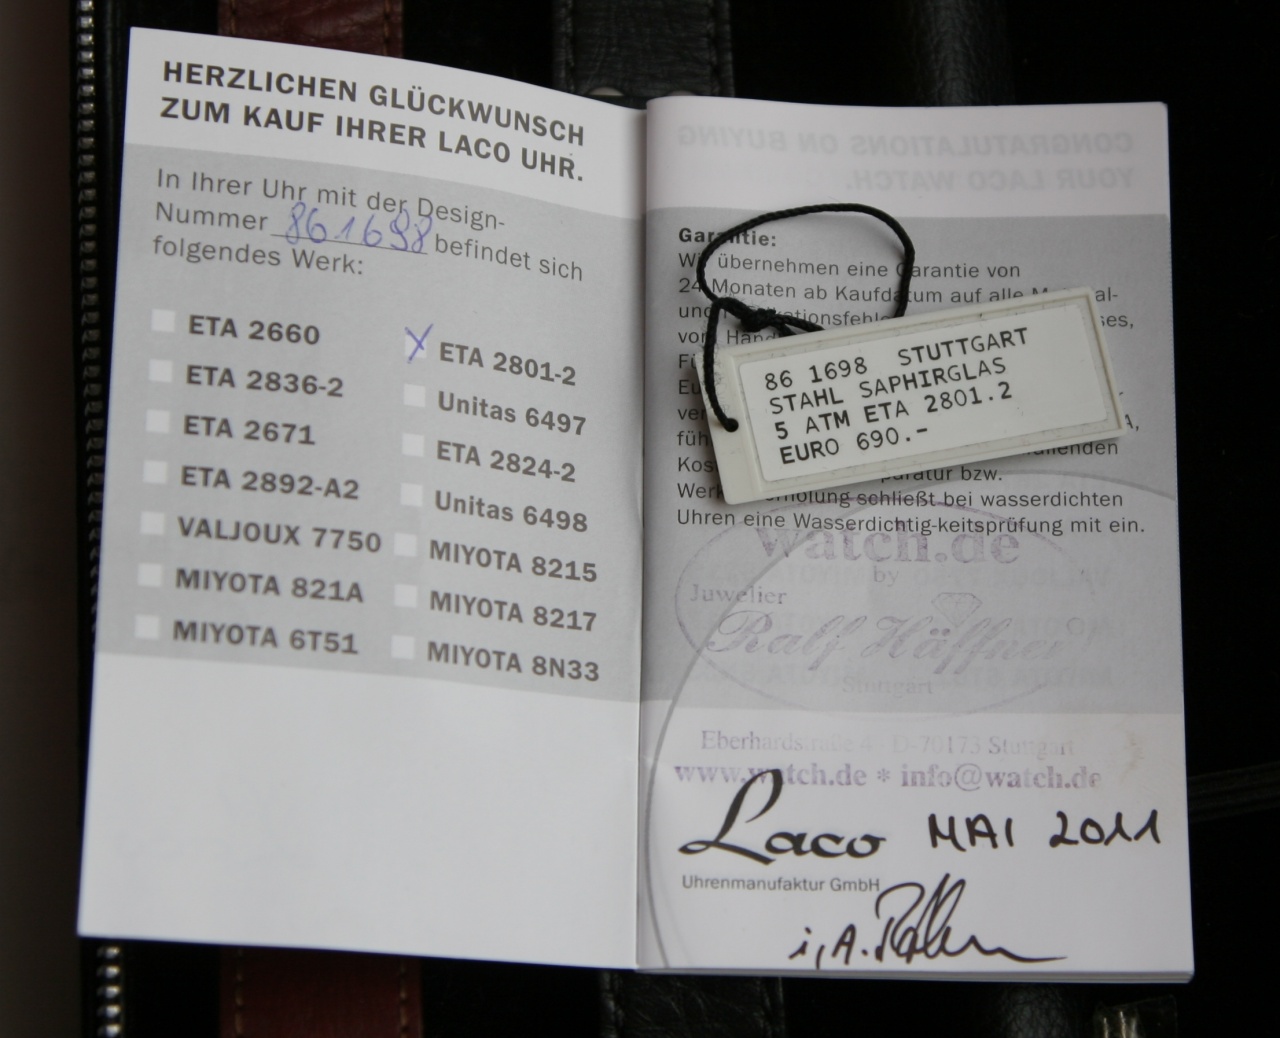 HERZLICHEN GLÜCKWUNSCH
ZUM KAUF IHRER LACO UHR.
In Ihrer Uhr mit der Design-
Nummer 861698 befindet sich
folgendes Werk:
ETA 2660
ETA 2836-2
ETA 2671
ETA 2892-A2
VALJOUX 7750
MIYOTA 821A
MIYOTA 6T51
X ETA 2801-2
Unitas 6497
ETA 2824-2
Unitas 6498
MIYOTA 8215
MIYOTA 8217
MIYOTA 8N33
CONGRATULATIONS ON BUYING
YOUR LACO WATCH.
Garantie:
Wir übernehmen eine Garantie von
24 Monaten ab Kaufdatum auf alle
und
vom
86 1698 STUTTGART
STAHL SAPHIRGLAS
5 ATM ETA 2801.2
EURO 690.-
bzw.
schließt bei wasserdichten
Uhren eine Wasserdichtig-keitsprüfung mit ein.
watch.de
by
Juwelier
Ralf Häffner
Stuttgart
Eberhardstraße 4 · D-70173 Stuttgart
www.watch.de * info@watch.de
Laco MAI 2011
Uhrenmanufaktur GmbH
i.A.